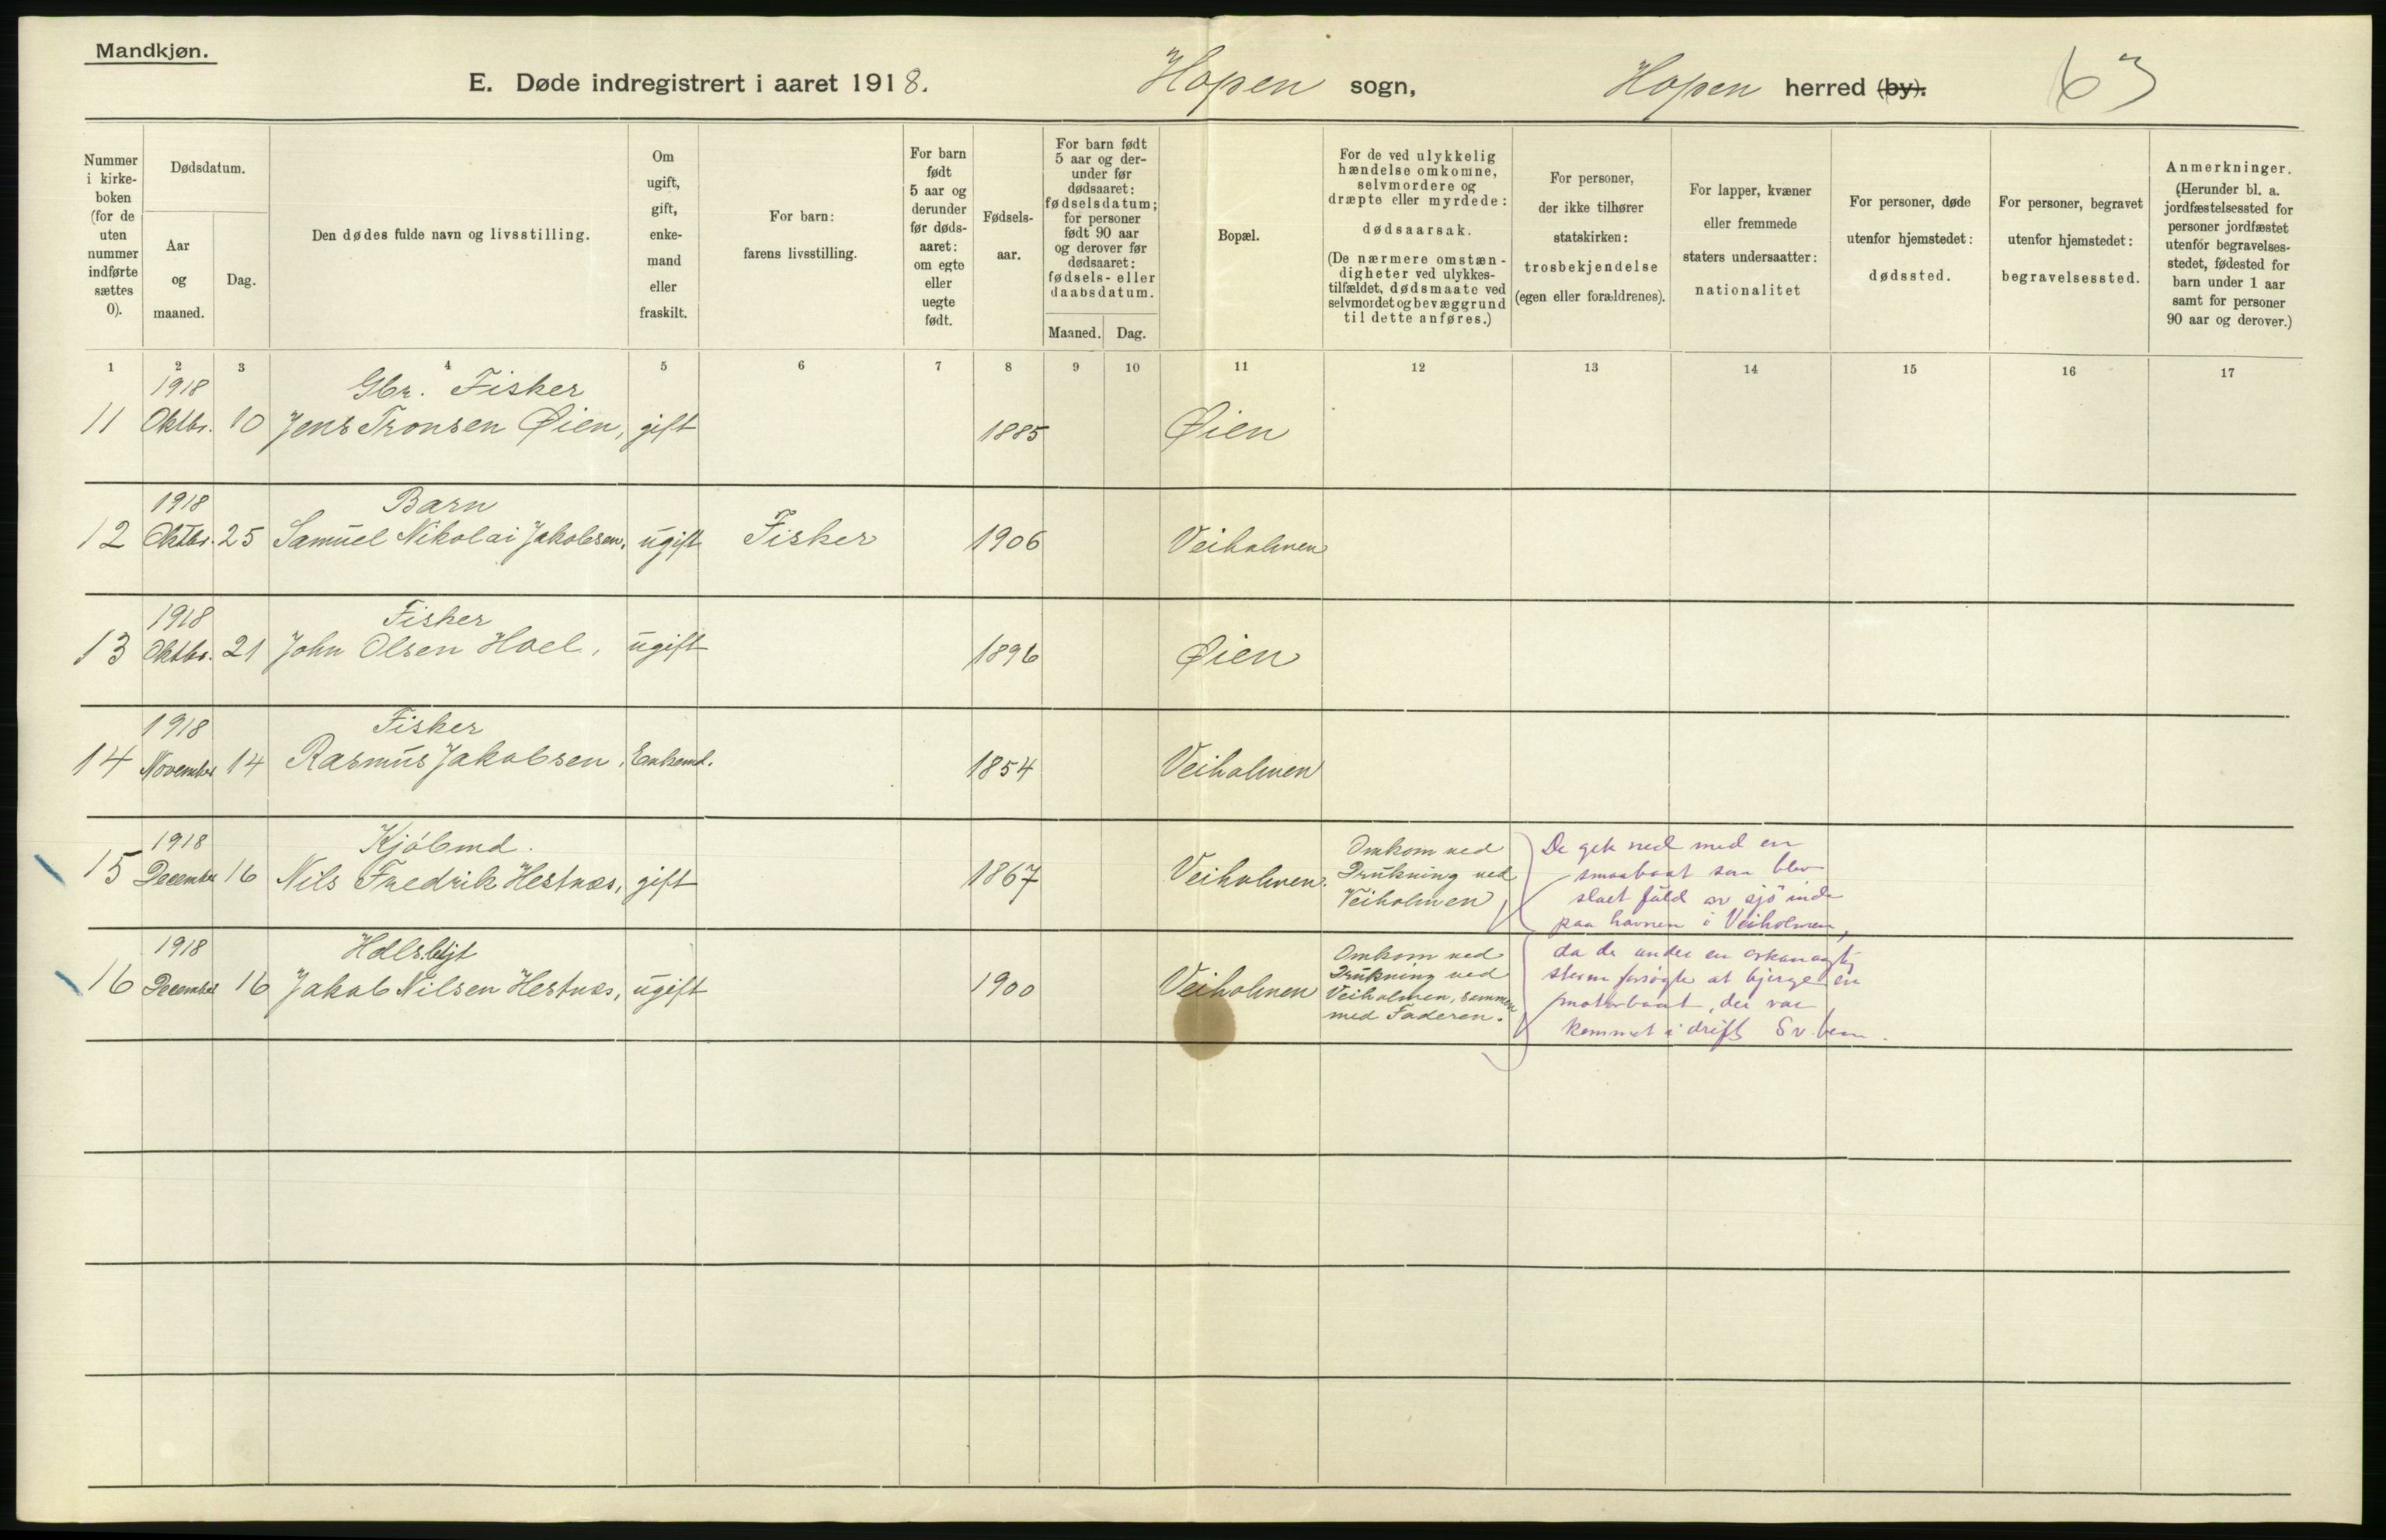 Mandkjøn.
E. Døde indregistrert i aaret 1918. Hopen sogn, Hopen herred (by). 63
Nummer i kirke- boken (for de uten nummer indførte sættes 0).
Dødsdatum.
Aar og maaned.
Dag.
Den dødes fulde navn og livsstilling.
Om ugift, gift, enke- mand eller fraskilt.
For barn: farens livsstilling.
For barn født 5 aar og derunder før døds- aaret: om egte eller uegte født.
Fødsels- aar.
For barn født 5 aar og der- under før dødsaaret: fødselsdatum; for personer født 90 aar og derover før dødsaaret: fødsels- eller daabsdatum.
Maaned. Dag.
Bopæl.
For de ved ulykkelig hændelse omkomne, selvmordere og dræpte eller myrdede: dødsaarsak.
(De nærmere omstæn- digheter ved ulykkes- tilfældet, dødsmaate ved selvmordet og bevæggrund til dette anføres.)
For personer, der ikke tilhører statskirken: trosbekjendelse (egen eller forældrenes).
For lapper, kvæner eller fremmede staters undersaatter: nationalitet
For personer, døde utenfor hjemstedet: dødssted.
For personer, begravet utenfor hjemstedet: begravelsessted.
Anmerkninger.
(Herunder bl. a. jordfæstelsessted for personer jordfæstet utenfor begravelses- stedet, fødested for barn under 1 aar samt for personer 90 aar og derover.)
1 2 3 4 5 6 7 8 9 10 11 12 13 14 15 16 17
1918 Gbr. Fisker
11 Oktbr. 10 Jens Tronsen Øien, gift 1885 Øien
1918 Barn
12 Oktbr. 25 Samuel Nikolai Jakobsen, ugift Fisker 1906 Veiholmen
1918 Fisker
13 Oktbr. 21 John Olsen Hoel, ugift 1896 Øien
1918 Fisker
14 November 14 Rasmus Jakobsen, Enkemd. 1854 Veiholmen
1918 Kjøbmd.
15 December 16 Nils Fredrik Hestnæs, gift 1867 Veiholmen.
Omkom ved
Drukning ved
Veiholmen,
De gik ned med en
smaabaat som blev
slaet fuld av sjø inde
paa havnen i Veiholmen,
1918
16 December 16 Jakob Nilsen Hestnæs, ugift 1900 Veiholmen
Omkom ved
Drukning ved
Veiholmen, sammen
med Faderen.
da de under en orkanagtig
storm forsøgte at bjerge en
motorbaat, der var
kommet i drift